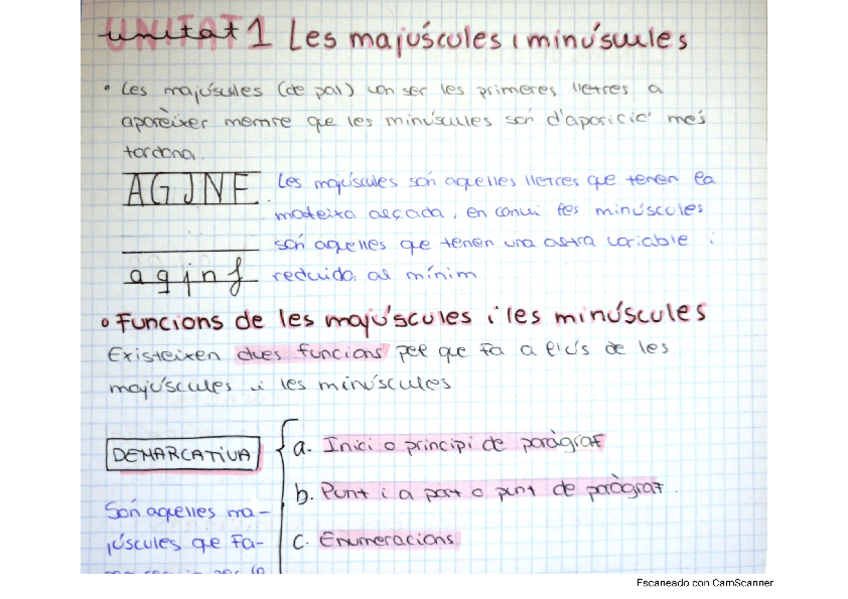 unitat 1 Les majúscules i minúscules
• Les majúscules (de pal) van ser les primeres lletres a
aparèixer mentre que les minúscules són d'aparició més
tardana.
A G J N F
Les majúscules són aquelles lletres que tenen la
mateixa alçada, en canvi les minúscules
són aquelles que tenen una astra variable i
a g j n f
reduïda al mínim
• Funcions de les majúscules i les minúscules
Existeixen dues funcions pel que fa a l'ús de les
majúscules i les minúscules
DEMARCATIVA
a. Inici o principi de paràgraf
b. Punt i a part o punt de paràgraf.
c. Enumeracions
Són aquelles ma-
júscules que fa-
Escaneado con CamScanner